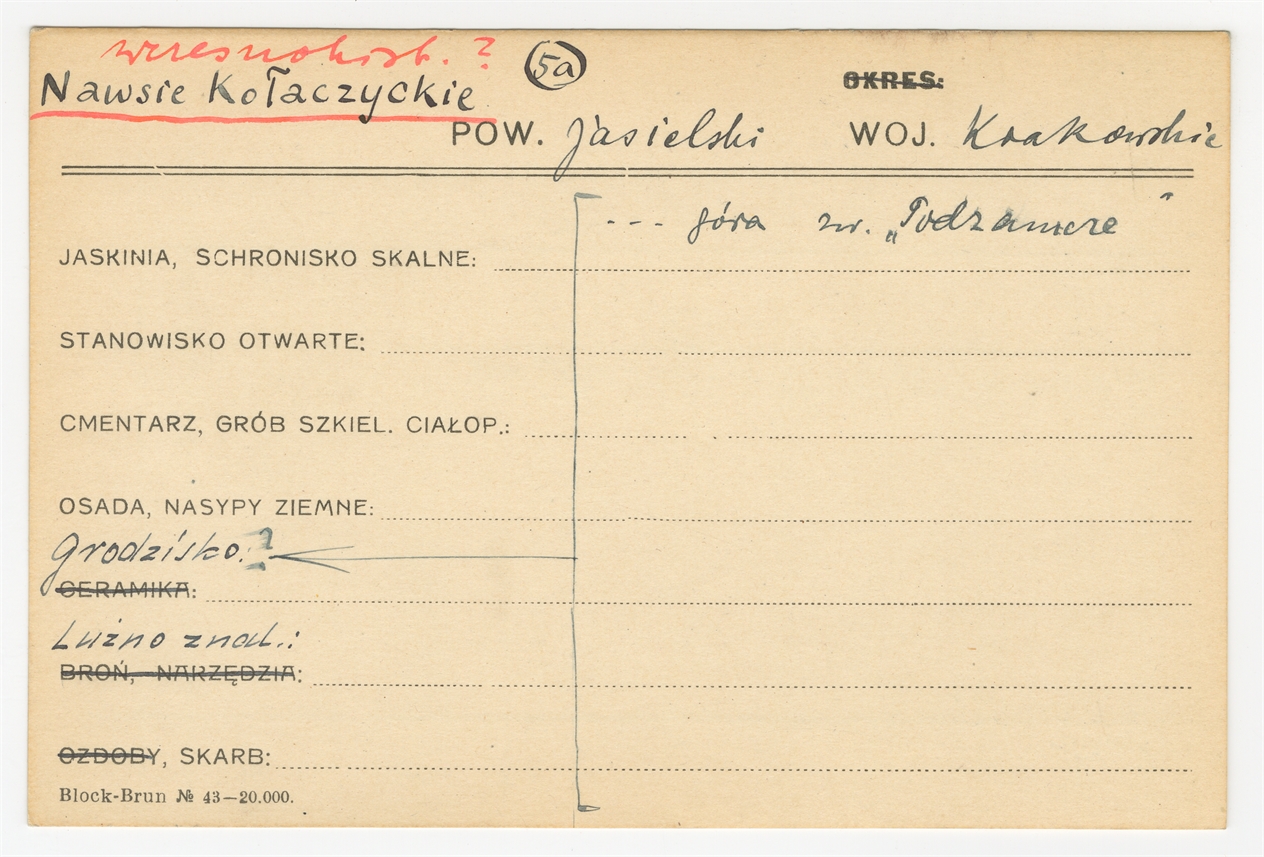 wczesnohist. ?
Nawsie Kołaczyckie 5a
OKRES:
POW. jasielski WOJ. Krakowskie
--- góra zw. „Podzamcze"
JASKINIA, SCHRONISKO SKALNE:
STANOWISKO OTWARTE:
CMENTARZ, GRÓB SZKIEL. CIAŁOP.:
OSADA, NASYPY ZIEMNE:
Grodzisko.?
CERAMIKA:
Luźno znal.:
BROŃ, NARZĘDZIA:
OZDOBY, SKARB:
Block-Brun № 43—20.000.